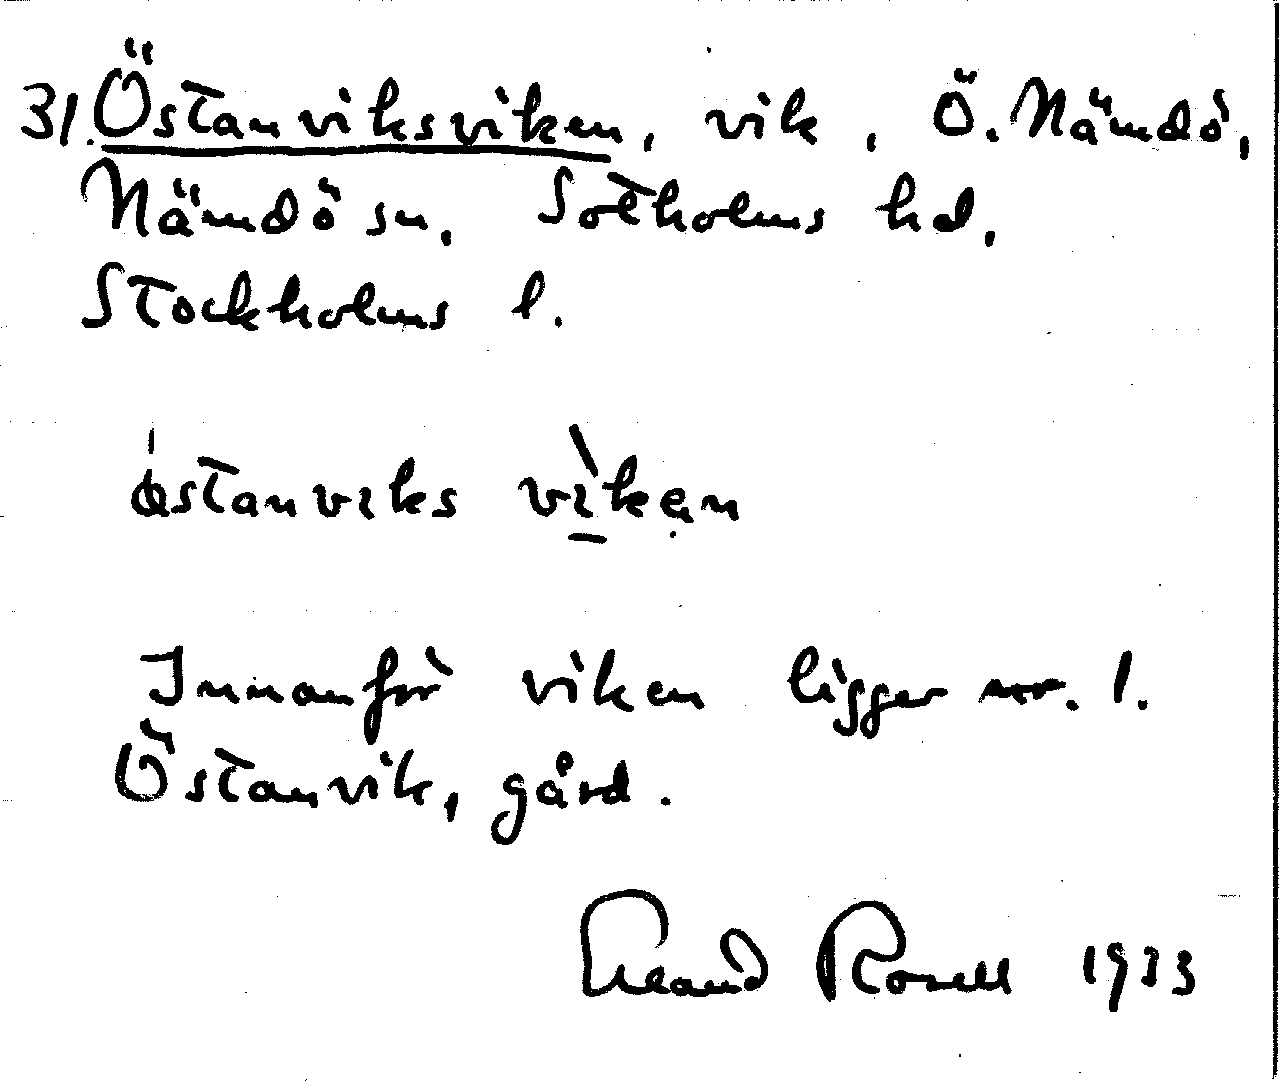 31. Östanviksviken, vik, Ö. Nämdö,
Nämdö sn, Sotholms hd,
Stockholms l.
ǿstanviks vìkən
Innanför viken ligger nr. 1.
Östanvik, gård.
Erland Rosell 1933